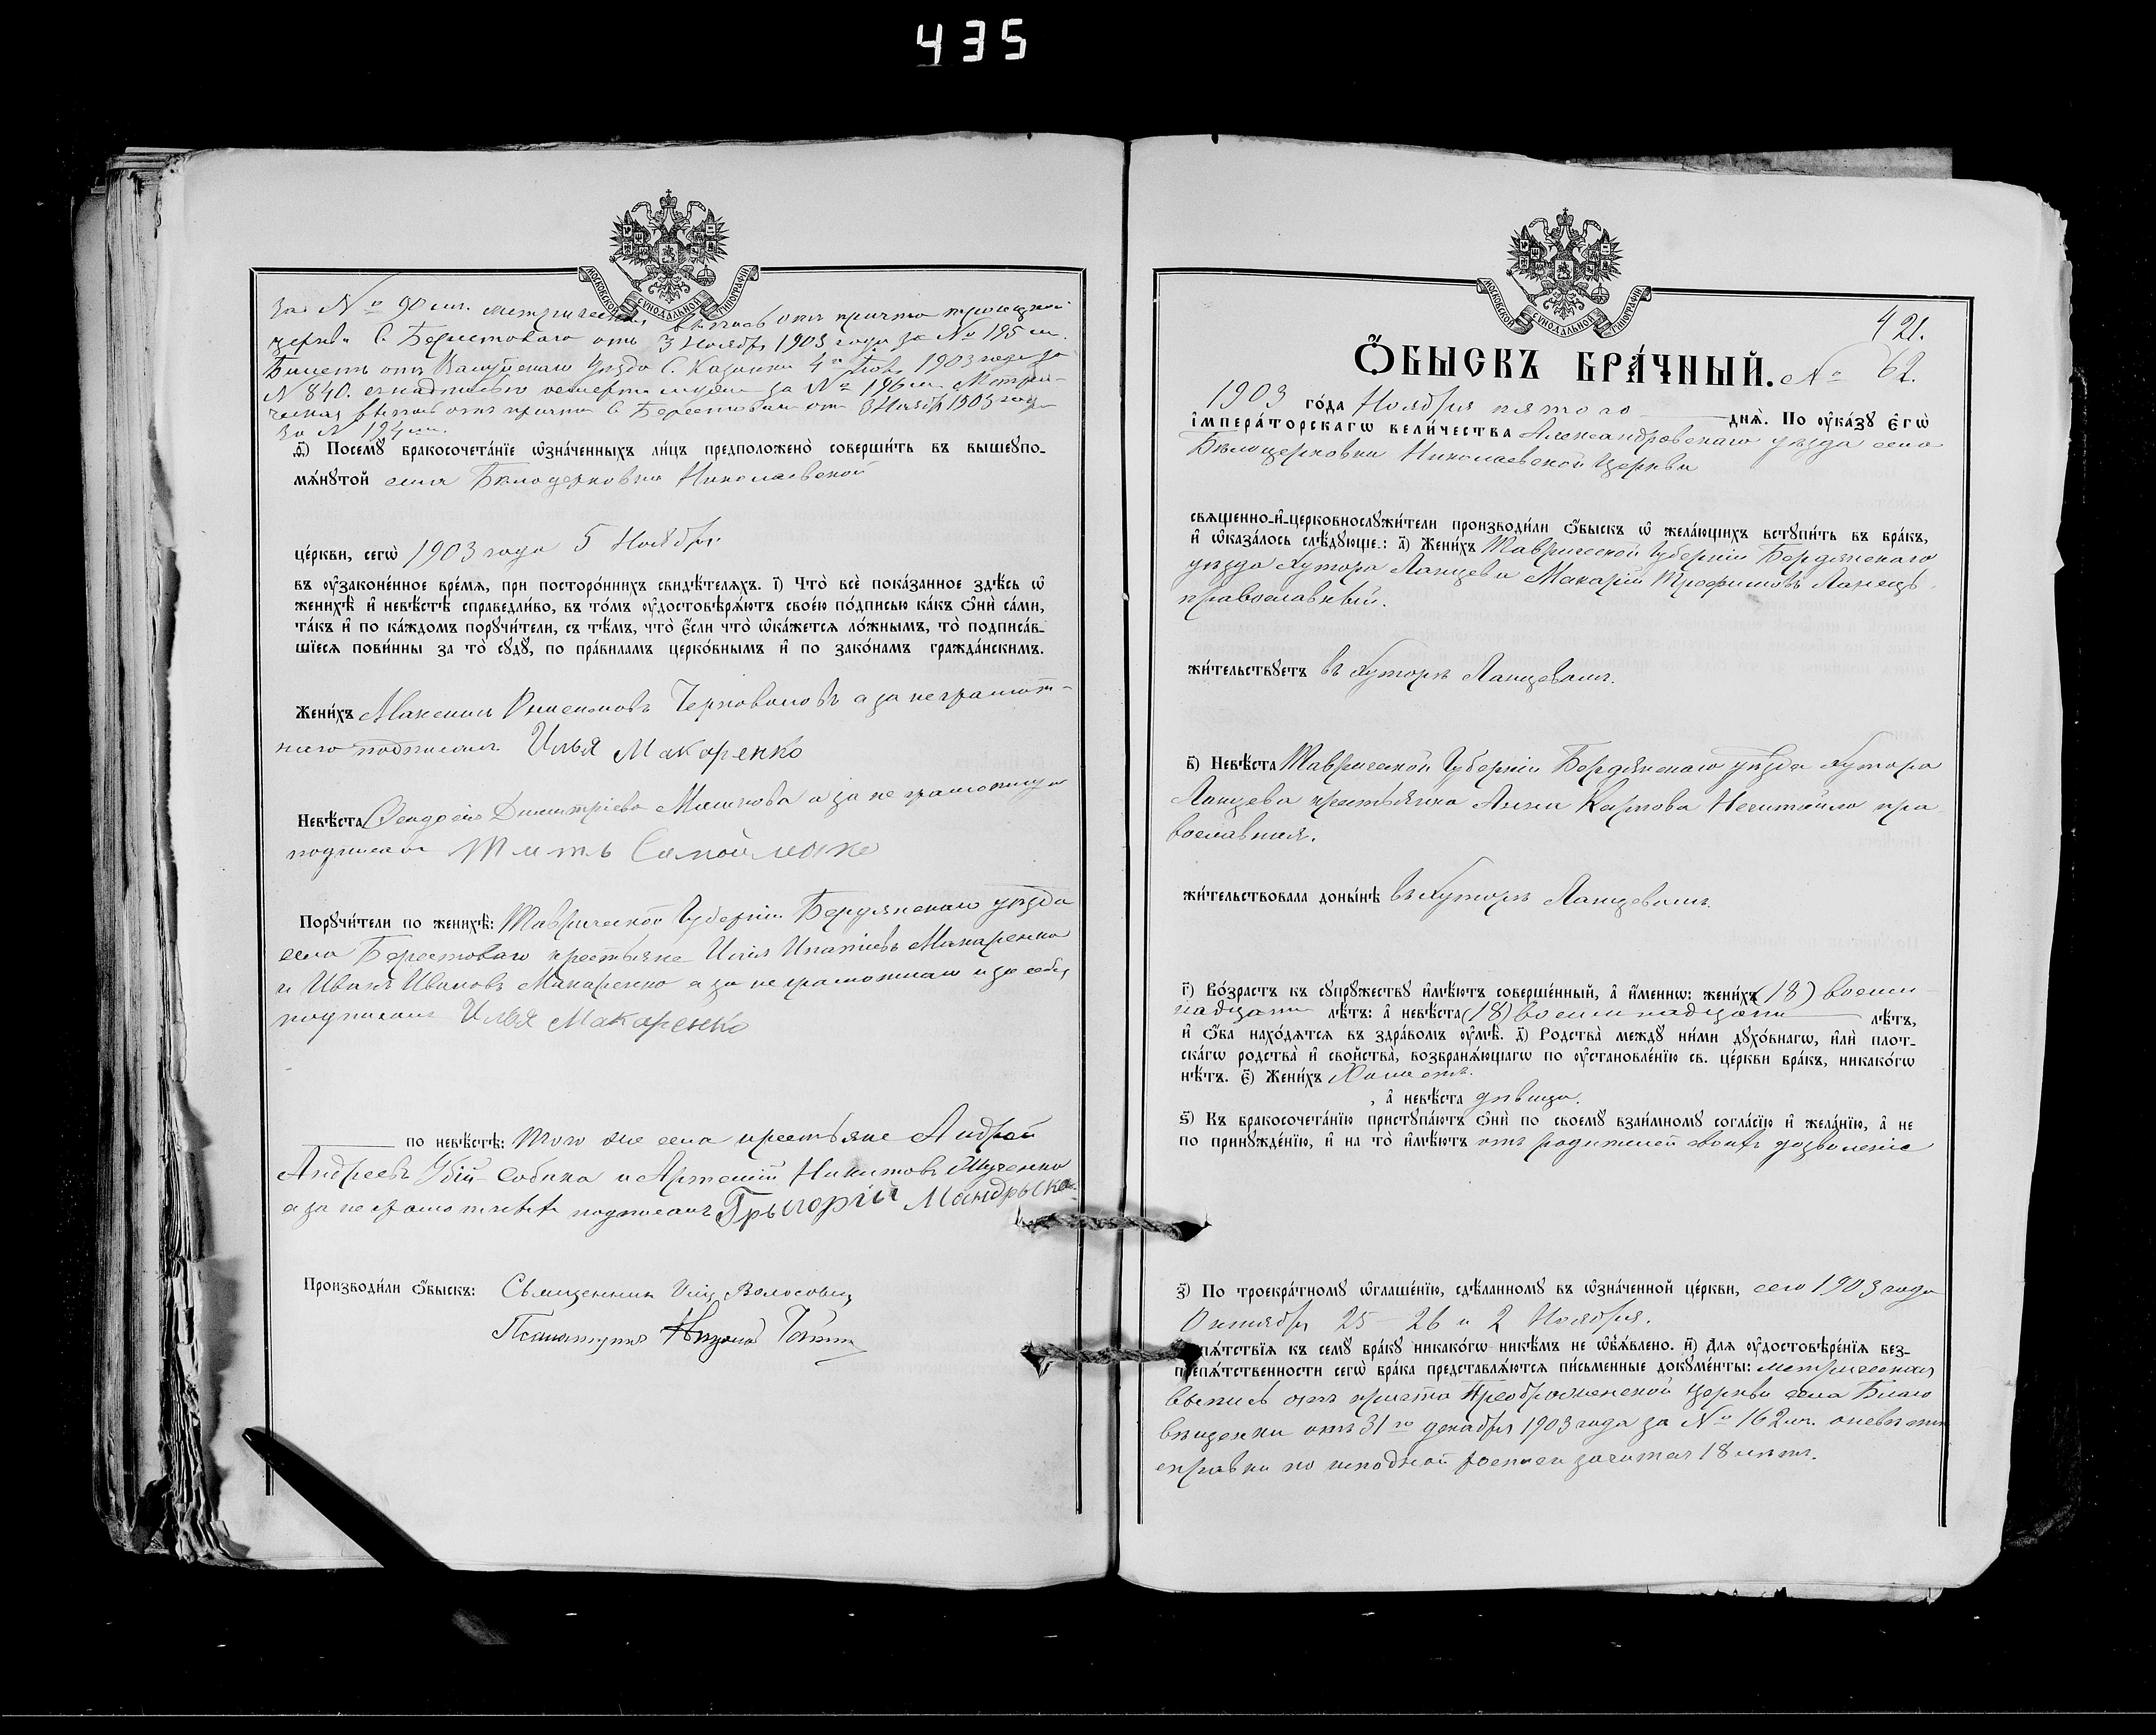 435
МОСКОВСКОЙ СУНОДАЛЬНОЙ ТИПОГРАФІИ
за № 90 м. метрическая выпись отъ причта троицкой
церкви С. Берестоваго отъ 3 Ноября 1903 года за № 195 м.
Билетъ отъ Валуйскаго Уезда С. Казинки 4го Ноя. 1903 года за
N 840. за № 196 м. Метри-
ческая выпись отъ причта С. Берестоваго отъ 3 Ноября 1903 года
за № 194 м.
ѳ҃) Посемꙋ бракосочета́нїе ѡ҆зна́ченныхъ ли́цъ предположено̀ соверши́ть въ вышеꙋпо-
мѧ́нꙋтой села Бѣлоцерковки Николаевской
це́ркви, сегѡ̀ 1903 года 5 Ноября
въ ᲂу҆зако́ненное вре́мѧ, при посторо́ннихъ свидѣ́телѧхъ. і҃) Что̀ всѐ пока́занное здѣ́сь ѡ҆
женихѣ̀ и҆ невѣ́стѣ справедли́во, въ то́мъ ᲂу҆достовѣрѧ́ютъ свое́ю по́дписью ка́къ ѻ҆нѝ са́ми,
та́къ и҆ по ка́ждомъ порꙋчи́тели, съ тѣ́мъ, что̀ є҆́сли что̀ ѡ҆ка́жется ло́жнымъ, то̀ подписа́в-
шїесѧ пови́нны за то̀ сꙋдꙋ̀, по пра́виламъ церко́внымъ и҆ по зако́намъ гражда́нскимъ.
Жени́хъ Максимъ а за неграмот-
наго подписалъ Илья Макаренко
Невѣ́ста Феодосія Димитріева Машкова а за не грамотную
подписалъ Титъ Самойленко
Порꙋчи́тели по женихѣ̀: Таврической Губерніи Бердянскаго уѣзда
села Берестоваго крестьяне Илія Ипатіевъ Макаренко
и Иванъ Ивановъ Макаренко а за не грамотнаго и за себя
подписалъ Илья Макаренко
по невѣ́стѣ: Того же села крестьяне Андрей
Андреевъ Убій-Собака и Артемій Никитовъ
а за не грамотныхъ подписалъ Грыгорій Мандрыка
Производи́ли ѻ҆́быскъ: Священникъ Волосовичъ
Псаломщикъ
МОСКОВСКОЙ СУНОДАЛЬНОЙ ТИПОГРАФІИ
421.
Ѻ҆́БЫСКЪ БРА́ЧНЫЙ. № 62.
1903 го́да Ноября пятого днѧ̀. По ᲂу҆ка́зꙋ є҆гѡ̀
і҆мпера́торскагѡ вели́чества Александровскаго уѣзда села
Бѣлоцерковки Николаевской Церкви
свѧще́нно-и҆-церковнослꙋжи́тели производи́ли ѻ҆́быскъ ѡ҆ жела́ющихъ встꙋпи́ть въ бра́къ,
и҆ ѡ҆каза́лось слѣ́дꙋюще.: а҃) Жени́хъ Таврической Губерніи Бердянскаго
уѣзда Хутора Ланцева Макарій Трофимовъ Ланецъ
православный.
жи́тельствꙋетъ въ Хуторѣ Ланцевомъ.
в҃) Невѣ́ста Таврической Губерніи Бердянскаго уѣзда Хутора
Ланцева крестьянка Анна Карпова Нечитайло пра-
вославная.
жи́тельствовала доны́нѣ въ Хуторѣ Ланцевомъ.
г҃) Во́зрастъ къ сꙋпрꙋ́жествꙋ и҆мѣ́ютъ соверше́нный, а҆ и҆́меннѡ: жени́хъ (18) восем-
надцати лѣ́тъ: а҆ невѣ́ста (18) восемнадцати лѣ́тъ,
и҆ ѻ҆́ба нахо́дѧтсѧ въ здра́вомъ ᲂу҆мѣ̀. д҃) Родства̀ междꙋ ни́ми дꙋхо́внагѡ, и҆лѝ плот-
ска́гѡ родства̀ и҆ сво́йства, возбранѧ́ющагѡ по ᲂу҆становле́нїю св. це́ркви бра́къ, никако́гѡ
нѣ́тъ. є҃) Жени́хъ Холостъ.
, а҆ невѣ́ста дѣвица.
ѕ҃) Къ бракосочета́нїю пристꙋпа́ютъ ѻ҆нѝ по своемꙋ̀ взаи́мномꙋ согла́сїю и҆ жела́нїю, а҆ не
по принꙋжде́нїю, и҆ на то̀ и҆мѣ́ютъ отъ родителей своихъ дозволеніе
з҃) По троекра́тномꙋ ѡ҆глаше́нїю, сдѣ́ланномꙋ въ ѡ҆зна́ченной це́ркви, сего 1903 года
Октября 25 26 и 2 Ноября.
пѧ́тствїѧ къ семꙋ̀ бра́кꙋ никако́гѡ никѣ́мъ не ѡ҆б̾ѧ́влено. и҃) Длѧ ᲂу҆достовѣре́нїѧ без-
препѧ́тственности сегѡ̀ бра́ка представлѧ́ютсѧ пи́сьменные докꙋме́нты: метрическая
выпись отъ причта Преображенской церкви села Благо
вѣщенки отъ 31го декабря 1903 года за № 162 м.
справки по исповедной росписи значится 18 лѣтъ.